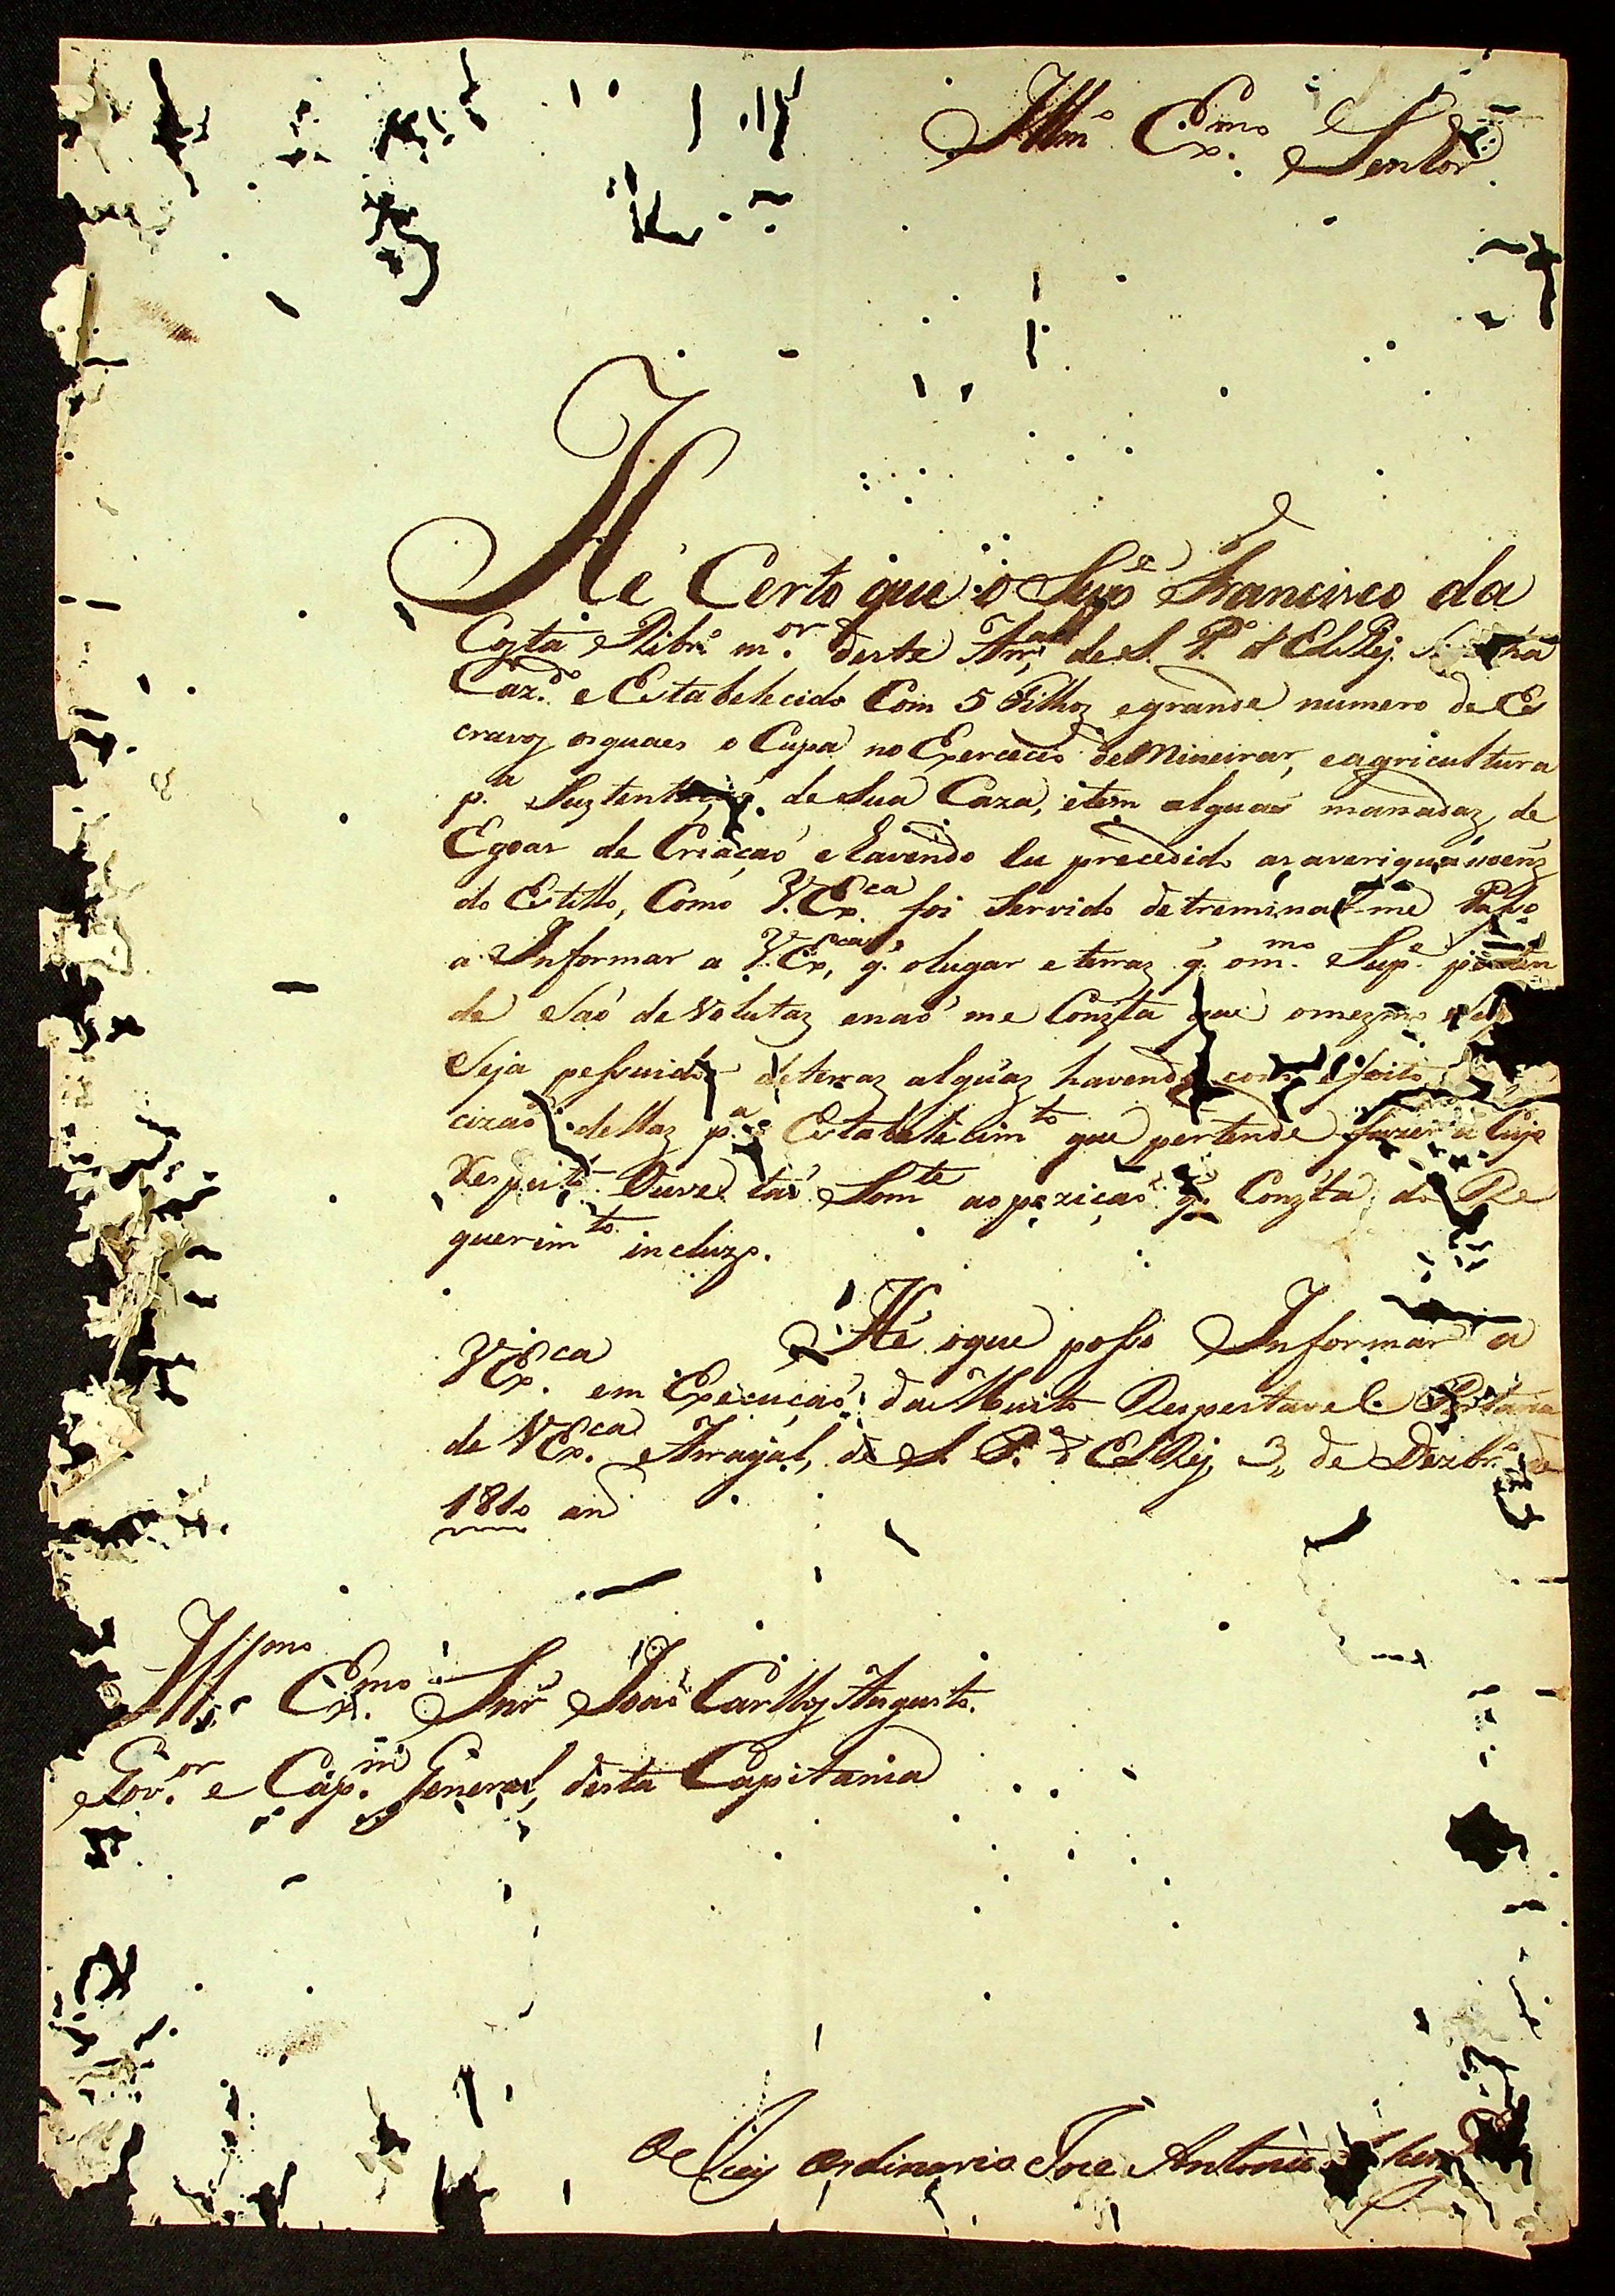 Illmº Exmº Senhor
Hé Certo que o Supe Francisco da
Costa Ribrº mor desta Arral de S. Pº d'ElRey
Cazdo e Estabelecido Com 5 Filhoz e grande numero de Es
cravoz os quaes o Cupa no Exercecio de Mineirar, e agricultura
pa Suztentação de Sua Caza, e tem alguas manadaz de
Egoas de Criaçaõ e havendo eu precedido as averiguaçoenz
do Estillo, Como V.Exca foi Servido detreminar-me Paço
a Informar a V.Exca, q. o lugar e terraz q. o mmo Supe perten
de Saõ devolutaz e naõ me Conzta que o mezmo
Seja pessuidor de terraz alguaz havendo com efeito
cizaõ dellaz pa o Estabelicimto que pertende fazer a Cujo
Respeito Somte as pozicaõ q. Conzta do Re
querimto incluzo.
Hé o que posso Informar a
V.Exca em Execuçaõ da Muito Respertavel Portaria
de V.Exca Arrayal, de S. P. d'ElRey, 3, de Dezbrº de
1810 an
Illmo Exmo Snr Joaõ Carlloz Augusto.
Govor e Capm General, desta Capitania
O Juiz Ordinario Joze Antonio